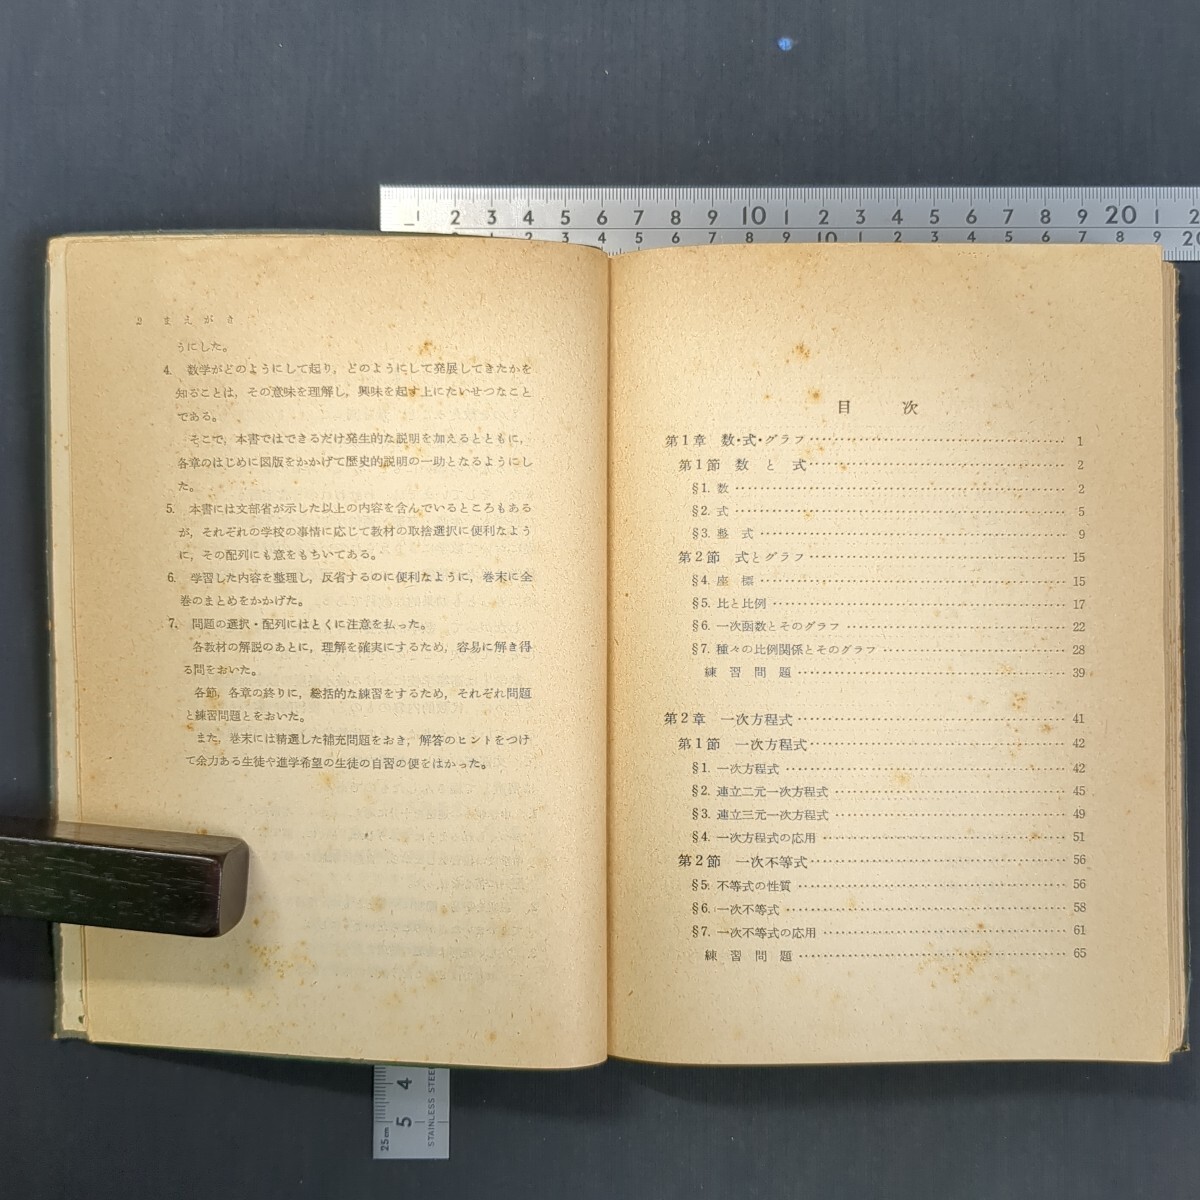 1 2 3 4 5 6 7 8 9 10 1 2 3 4 5 6 7 8 9 20 1 2
2 3 4 5 6 7 8 9 10 1 2 3 4 5 6 7 8 9 20
2 まえがき
うにした。
4. 数学がどのようにして起り，どのようにして発展してきたかを
知ることは，その意味を理解し，興味を起す上にたいせつなこと
である。
そこで，本書ではできるだけ発生的な説明を加えるとともに，
各章のはじめに図版をかかげて歴史的説明の一助となるようにし
た。
5. 本書には文部省が示した以上の内容を含んでいるところもある
が，それぞれの学校の事情に応じて教材の取捨選択に便利なよう
に，その配列にも意をもちいてある。
6. 学習した内容を整理し，反省するのに便利なように，巻末に全
巻のまとめをかかげた。
7. 問題の選択・配列にはとくに注意を払った。
各教材の解説のあとに，理解を確実にするため，容易に解き得
る問をおいた。
各節，各章の終りに，総括的な練習をするため，それぞれ問題
と練習問題とをおいた。
また，巻末には精選した補充問題をおき，解答のヒントをつけ
て余力ある生徒や進学希望の生徒の自習の便をはかった。
目 次
第1章 数・式・グラフ……1
第1節 数 と 式……2
§1. 数……2
§2. 式……5
§3. 整 式……9
第2節 式とグラフ……15
§4. 座 標……15
§5. 比と比例……17
§6. 一次函数とそのグラフ……22
§7. 種々の比例関係とそのグラフ……28
練 習 問 題……39
第2章 一次方程式……41
第1節 一次方程式……42
§1. 一次方程式……42
§2. 連立二元一次方程式……45
§3. 連立三元一次方程式……49
§4. 一次方程式の応用……51
第2節 一次不等式……56
§5. 不等式の性質……56
§6. 一次不等式……58
§7. 一次不等式の応用……61
練 習 問 題……65
4 5
25cm
STAINLESS STEE